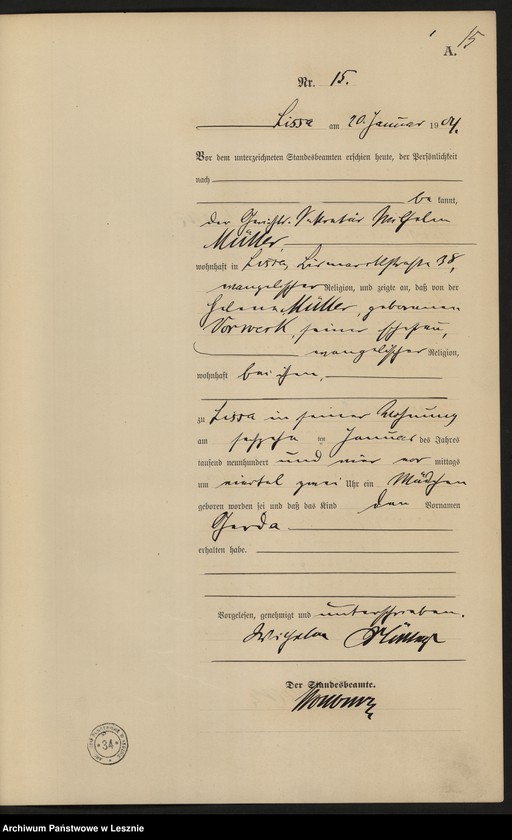 15
A.
Nr. 15.
Lissa am 20. Januar 1904.
Vor dem unterzeichneten Standesbeamten erschien heute, der Persönlichkeit
nach
bekannt,
der Gerichts-Sekretär Wilhelm
Müller,
wohnhaft in Lissa, Bismarckstraße 38,
evangelischer Religion, und zeigte an, daß von der
Helene Müller, geborenen
Vorwerk, seiner Ehefrau,
evangelischer Religion,
wohnhaft bei ihm,
zu Lissa in seiner Wohnung
am sechzehn im Januar des Jahres
tausend neunhundert und vier vor mittags
um viertel zwei Uhr ein Mädchen
geboren worden sei und daß das Kind den Vornamen
Gerda
erhalten habe.
Vorgelesen, genehmigt und unterschrieben.
Wilhelm Müller
Der Standesbeamte.
34
Archiwum Państwowe w Lesznie